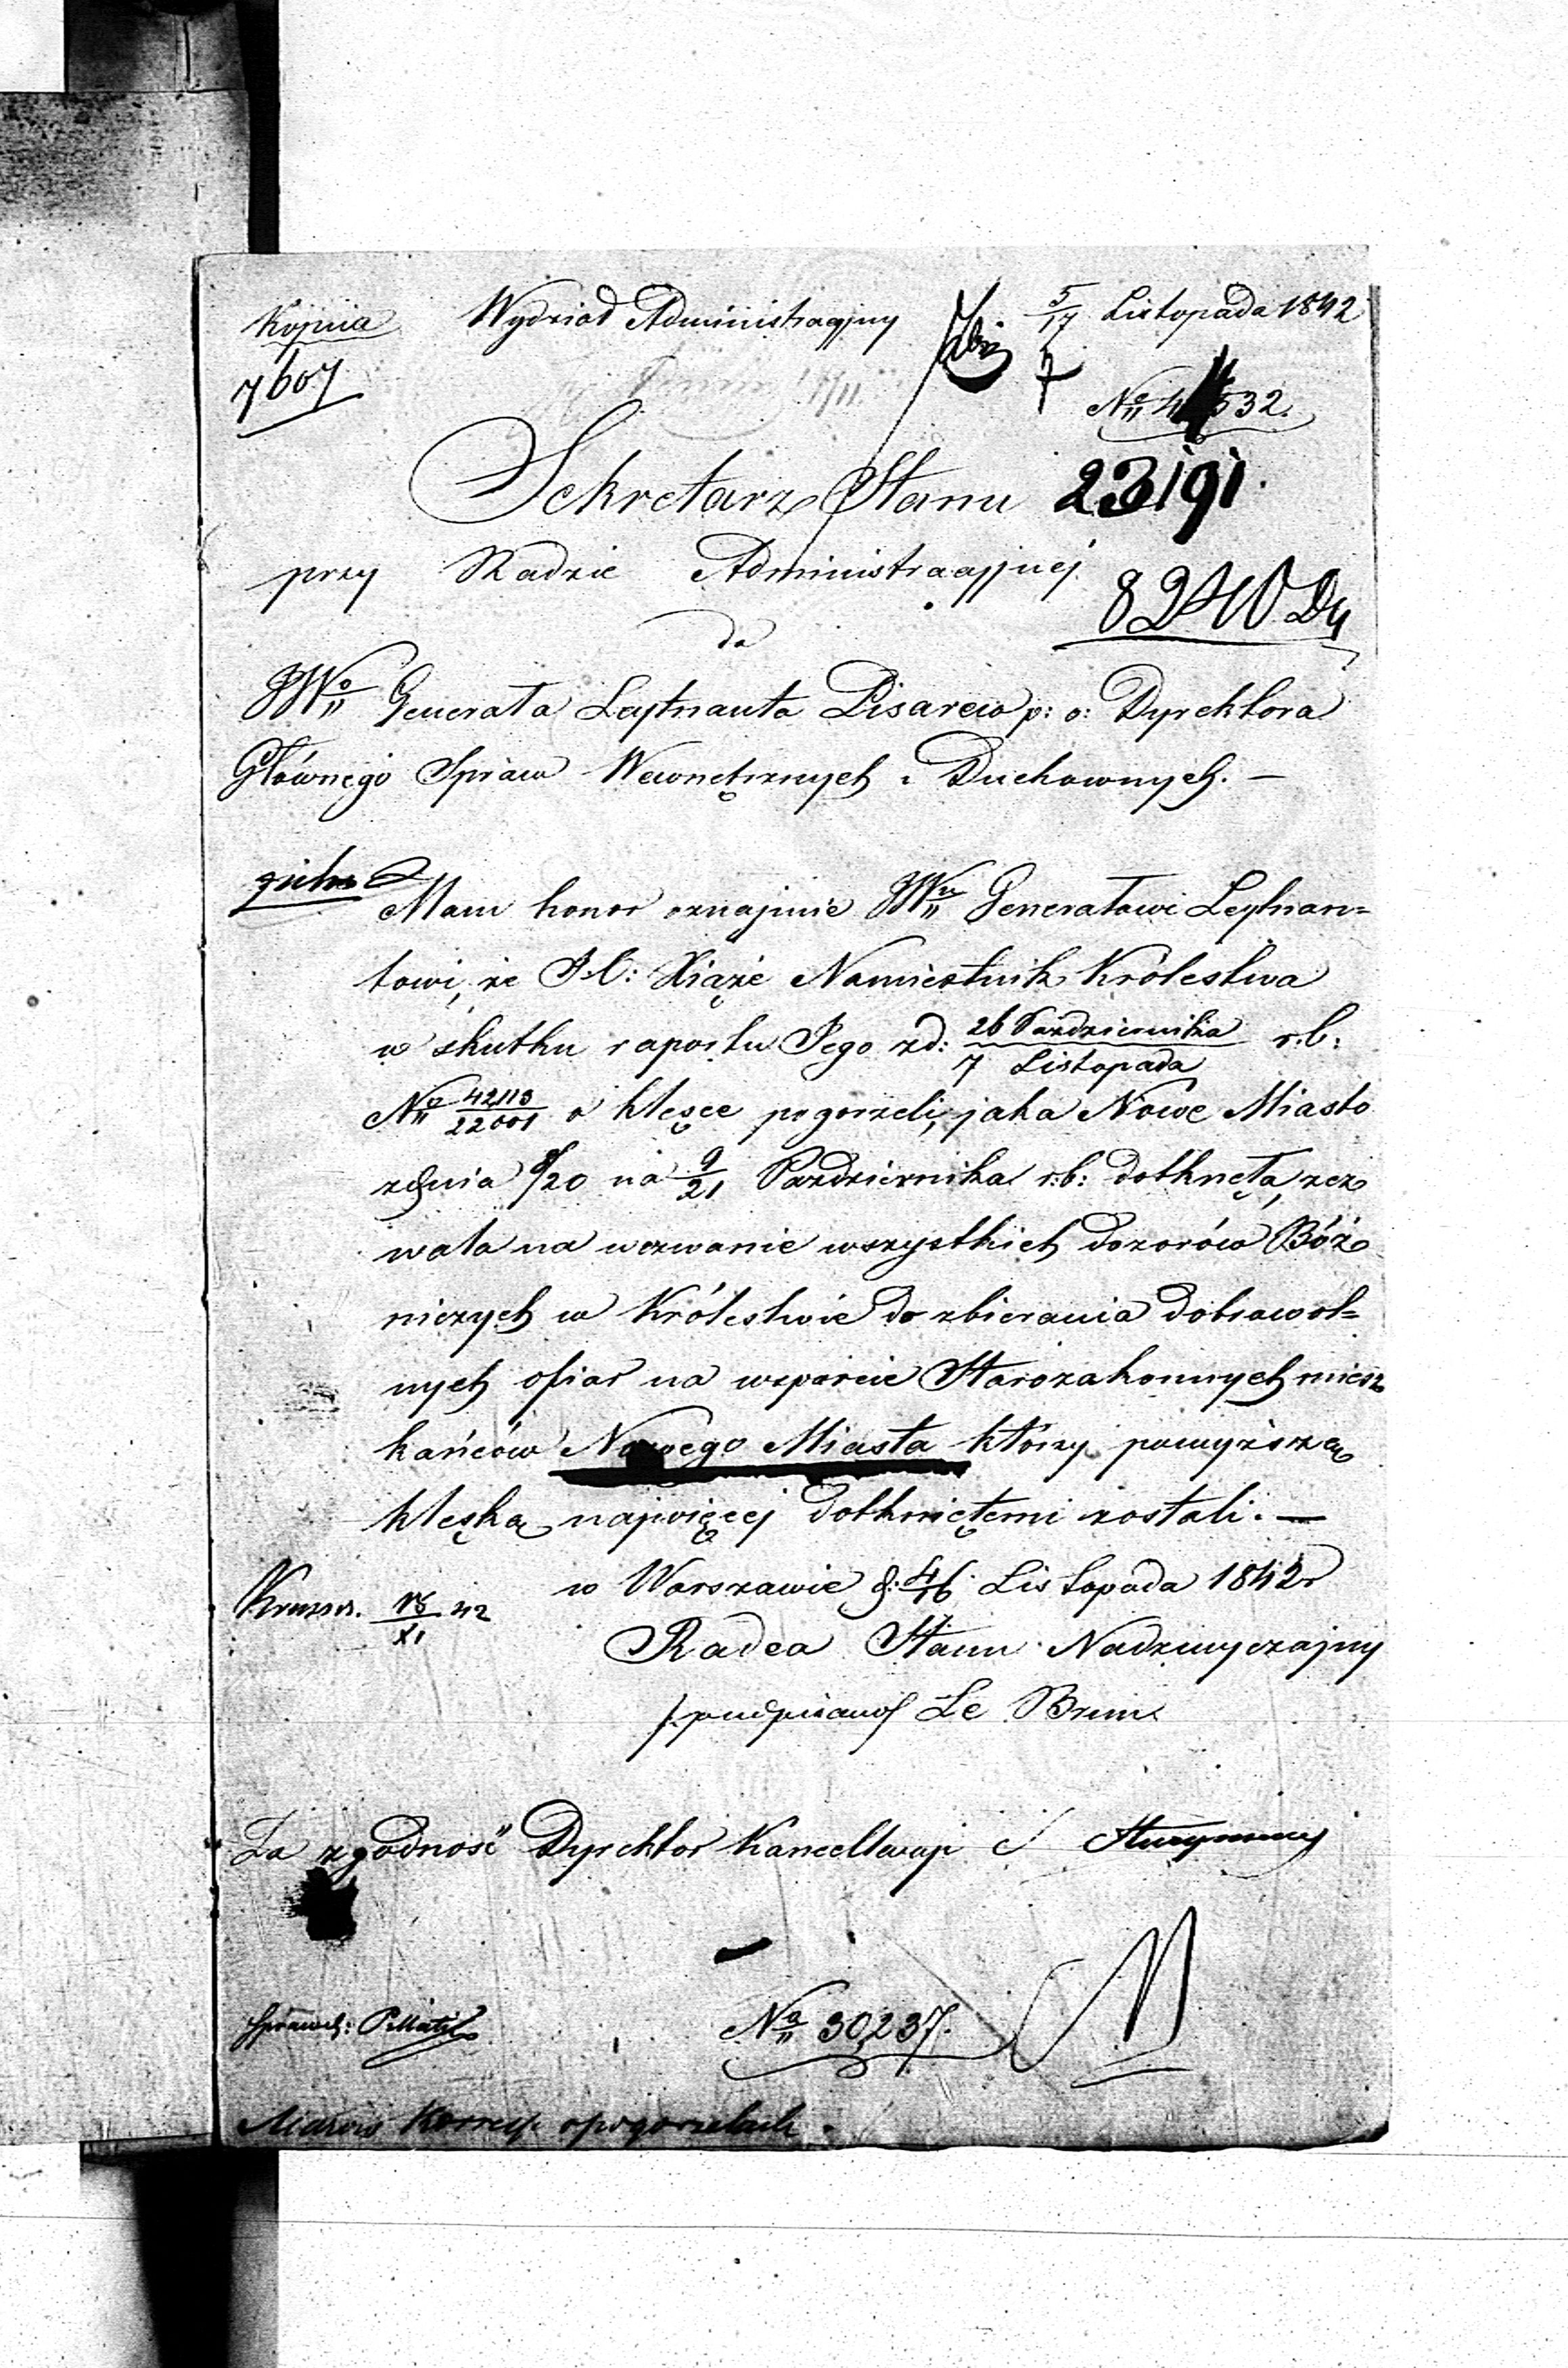 Kopija Wydział Administracyjny 5/17 Listopada 1842
7607
Nº 532.
Sekretarz Stanu 23191.
przy Radzie Administracyjnej
8240 Dy
do
JWº Generała Leytnanta Pisarewa p: o: Dyrektora
Głównego Spraw Wewnętrznych i Duchownych. —
Mam honor oznajmić JWu Generałowi Leytnan=
towi, że J.O: Xiąże Namiestnik Królestwa
w skutku raportu Jego z d: 26 Października / 7 Listopada r.b:
Nº 42113/22001 o klęsce pogorzeli, jaka Nowe Miasto
z dnia 8/20 na 9/21 Października r.b: dotknęła, zez
wala na wezwanie wszystkich dozorów Bóż
niczych w Królestwie do zbierania dobrowol=
nych ofiar na wsparcie Starozakonnych miesz
kańców Nowego Miasta którzy powyższą
klęską najwięcej dotkniętemi zostali. —
w Warszawie d: 4/16 Listopada 1842 r
XI 42
Radca Stanu Nadzwyczajny
/:podpisano/ Le Brun
Za zgodność Dyrektor Kancellaryi
Nº 30,237.